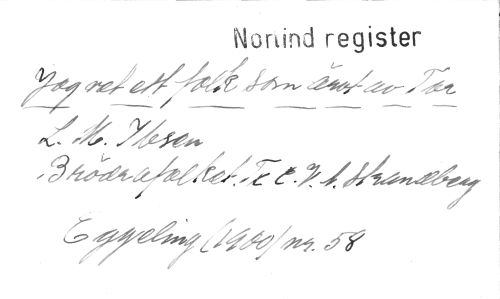 Norlind register
Jag vet ett folk som ärvt av Tor
L. M. Ibsen
Brödrafolket. Tx C. V. A. Strandberg
Eggeling (1900) nr. 58